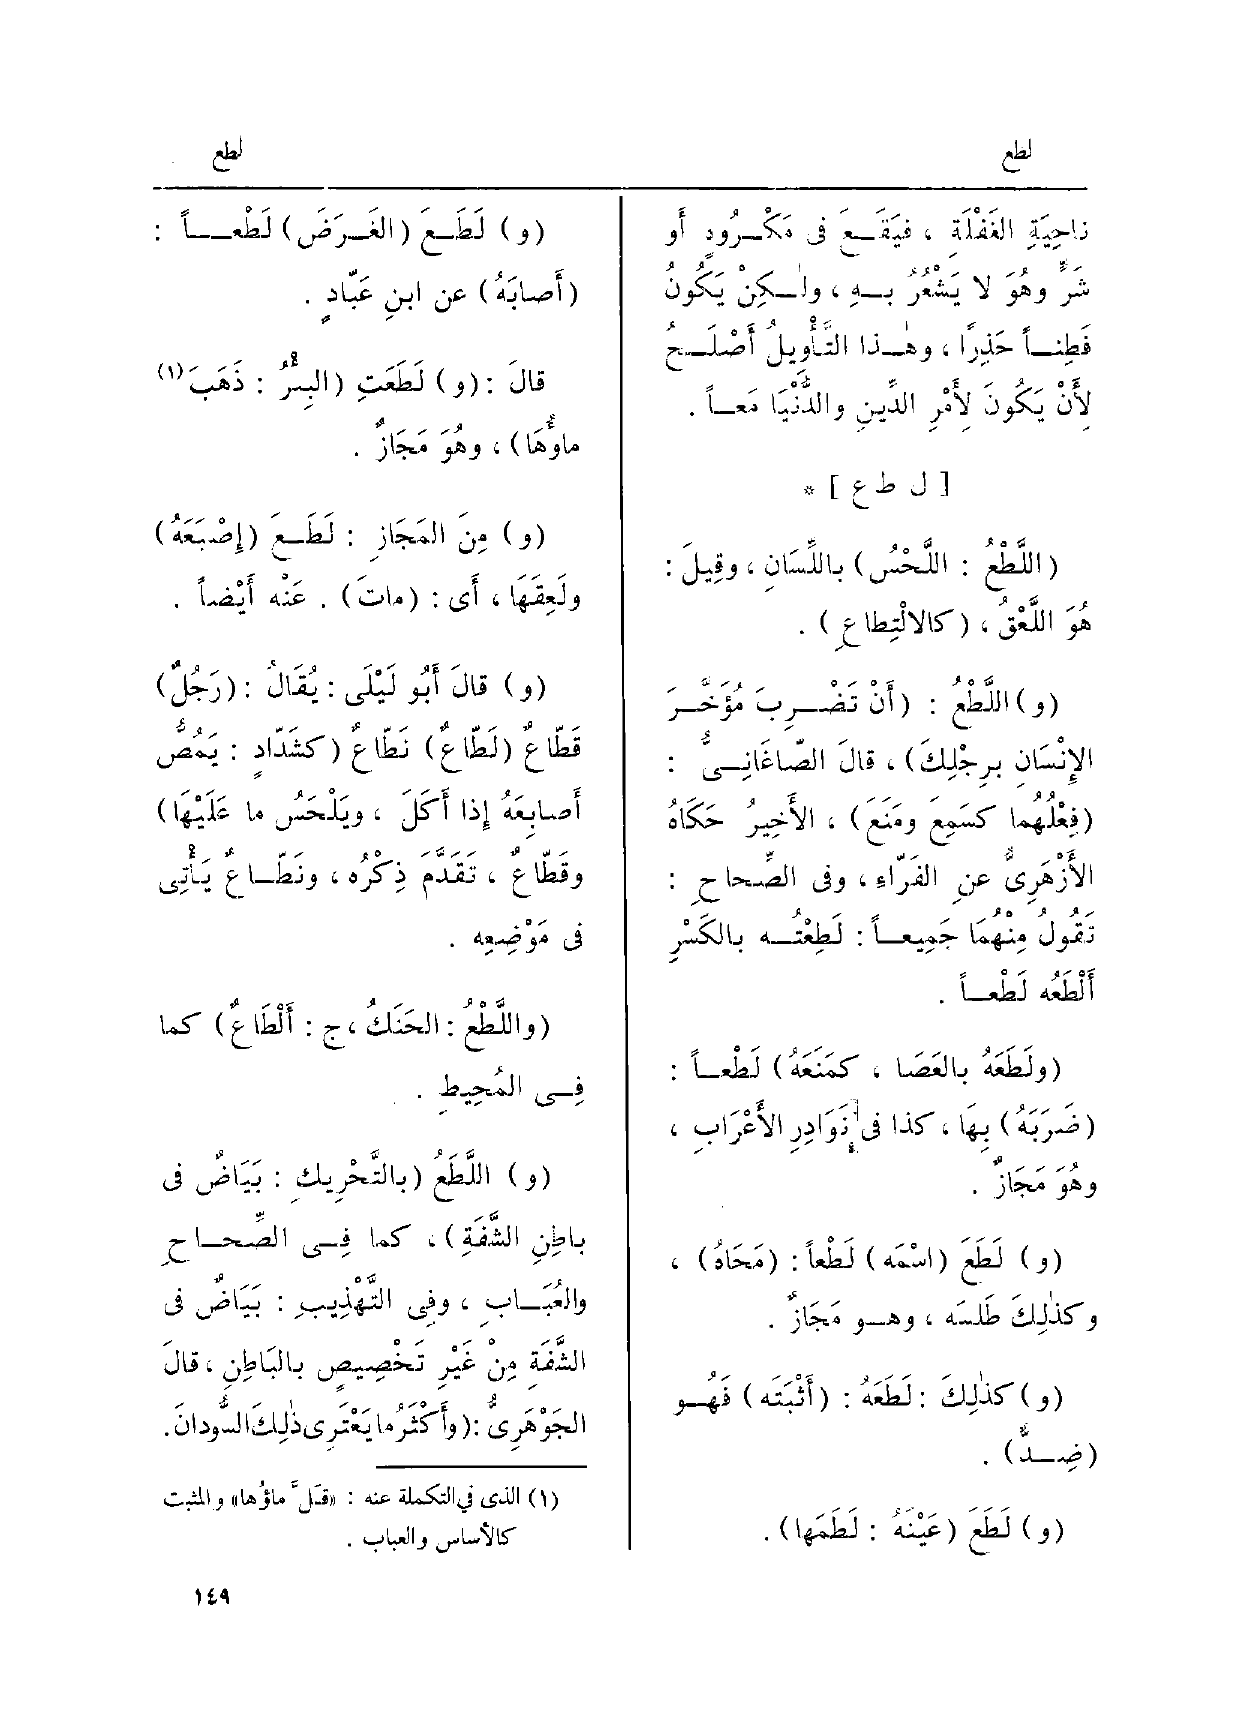 لطع
لطع
ناحِيَةِ الغَفْلَةِ ، فيَقَـعَ فى مَكْـرُودٍ أَو
شَرٍّ وهُوَ لا يَشْعُرُ بـهِ ، ولـٰكِنْ يَكُونُ
فَطِنـاً حَذِرًا ، وهـٰذا التَّأْوِيلُ أَصْلَـحُ
لِأَنْ يَكُونَ لِأَمْرِ الدِّينِ والدُّنْيَا مَعـاً .
[ ل ط ع ] *
(اللَّطْعُ : اللَّحْسُ) باللِّسَانِ ، وقِيلَ :
هُوَ اللَّعْقُ ، (كالالْتِطاعِ) .
(و) اللَّطْعُ : (أَنْ تَضْـرِبَ مُؤَخَّـرَ
الإِنْسَانِ برِجْلِكَ) ، قالَ الصّاغَانِـىُّ :
(فِعْلُهُما كسَمِعَ ومَنَعَ) ، الأَخِيرُ حَكَاهُ
الأَزْهَرِىُّ عنِ الفَرّاءِ ، وفى الصِّحاحِ :
تَقُولُ مِنْهُمَا جَمِيعـاً : لَطِعْتُـه بالكَسْرِ
أَلْطَعُه لَطْعـاً .
(ولَطَعَهُ بالعَصَا ، كمَنَعَهُ) لَطْعـاً :
(ضَرَبَهُ) بِهَا ، كذا فى نَوَادِرِ الأَعْرَابِ ،
وهُوَ مَجَازٌ .
(و) لَطَعَ (اسْمَه) لَطْعاً : (مَحَاهُ) ،
وكذٰلِكَ طَلَسَه ، وهـو مَجَازٌ .
(و) كذٰلِكَ : لَطَعَهُ : (أَثْبَتَه) فَهُـو
(ضِـدٌّ) .
(و) لَطَعَ (عَيْنَهُ : لَطَمَها) .
(و) لَطَـعَ (الغَـرَضَ) لَطْعـاً :
(أَصابَهُ) عن ابنِ عَبّادٍ .
قالَ : (و) لَطَعَتِ (البِئْرُ : ذَهَبَ (١)
ماؤُهَا) ، وهُوَ مَجَازٌ .
(و) مِنَ المَجَازِ : لَطَـعَ (إِصْبَعَهُ)
ولَعِقَهَا ، أَى : (ماتَ) . عَنْه أَيْضاً .
(و) قالَ أَبُو لَيْلَى : يُقَالُ : (رَجُلٌ)
قَطّاعٌ (لَطّاعٌ) نَطّاعٌ (كشَدّادٍ : يَمُصُّ
أَصابِعَهُ إِذا أَكَلَ ، ويَلْحَسُ ما عَلَيْهَا)
وقَطّاعٌ ، تَقَدَّمَ ذِكْرُه ، ونَطّـاعٌ يَأْتِى
فى مَوْضِعِه .
(واللَّطْعُ : الحَنَكُ ، ج : أَلْطَاعٌ) كما
فِـى المُحِيطِ .
(و) اللَّطَعُ (بالتَّحْرِيكِ : بَيَاضٌ فى
باطِنِ الشَّفَةِ) ، كما فِـى الصِّحـاحِ
والعُبَـابِ ، وفِى التَّهْذِيبِ : بَيَاضٌ فى
الشَّفَةِ مِنْ غَيْرِ تَخْصِيصٍ بالبَاطِنِ ، قالَ
الجَوْهَرِىُّ : (وأَكْثَرُ ما يَعْتَرِى ذٰلِكَ السُّودانَ .
(١) الذى فى التكملة عنه : «قَلَّ ماؤُها» والمثبت
كالأساس والعباب .
١٤٩